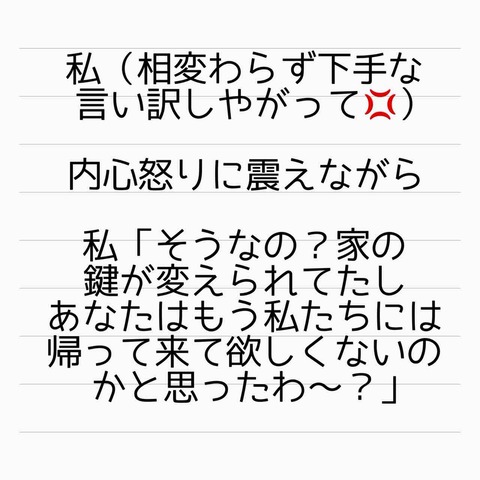 私（相変わらず下手な
言い訳しやがって💢）
内心怒りに震えながら
私「そうなの？家の
鍵が変えられてたし
あなたはもう私たちには
帰って来て欲しくないの
かと思ったわ〜？」